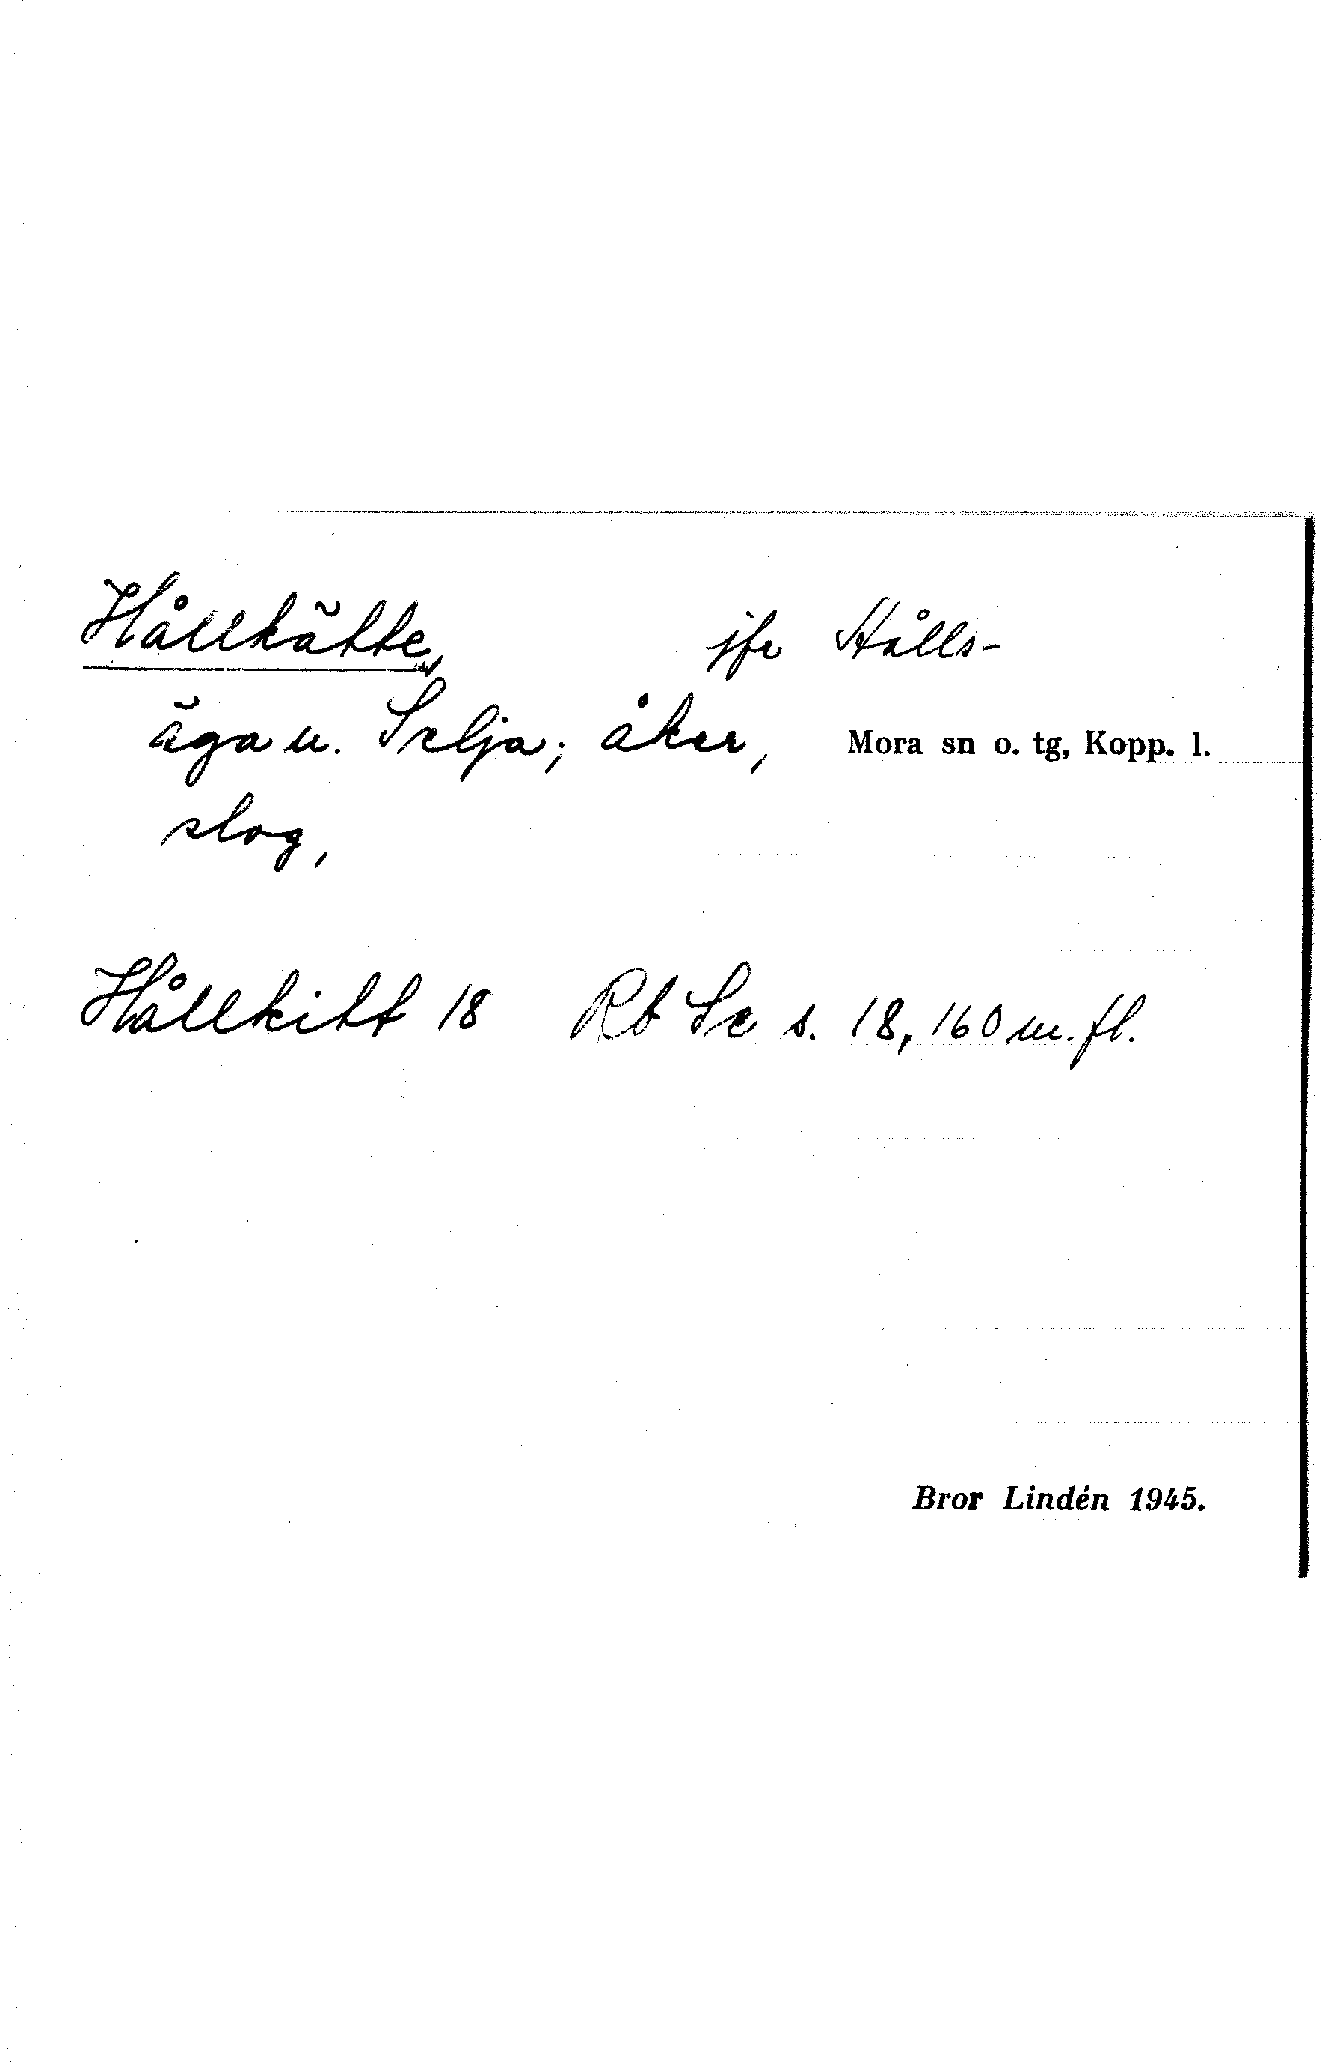 Hållkätte, jfr Hålls-
äga u. Selja; åker, Mora sn o. tg, Kopp. l.
slog,
Hållkitt 18 Rb Se s. 18, 160 m. fl.
Bror Lindén 1945.